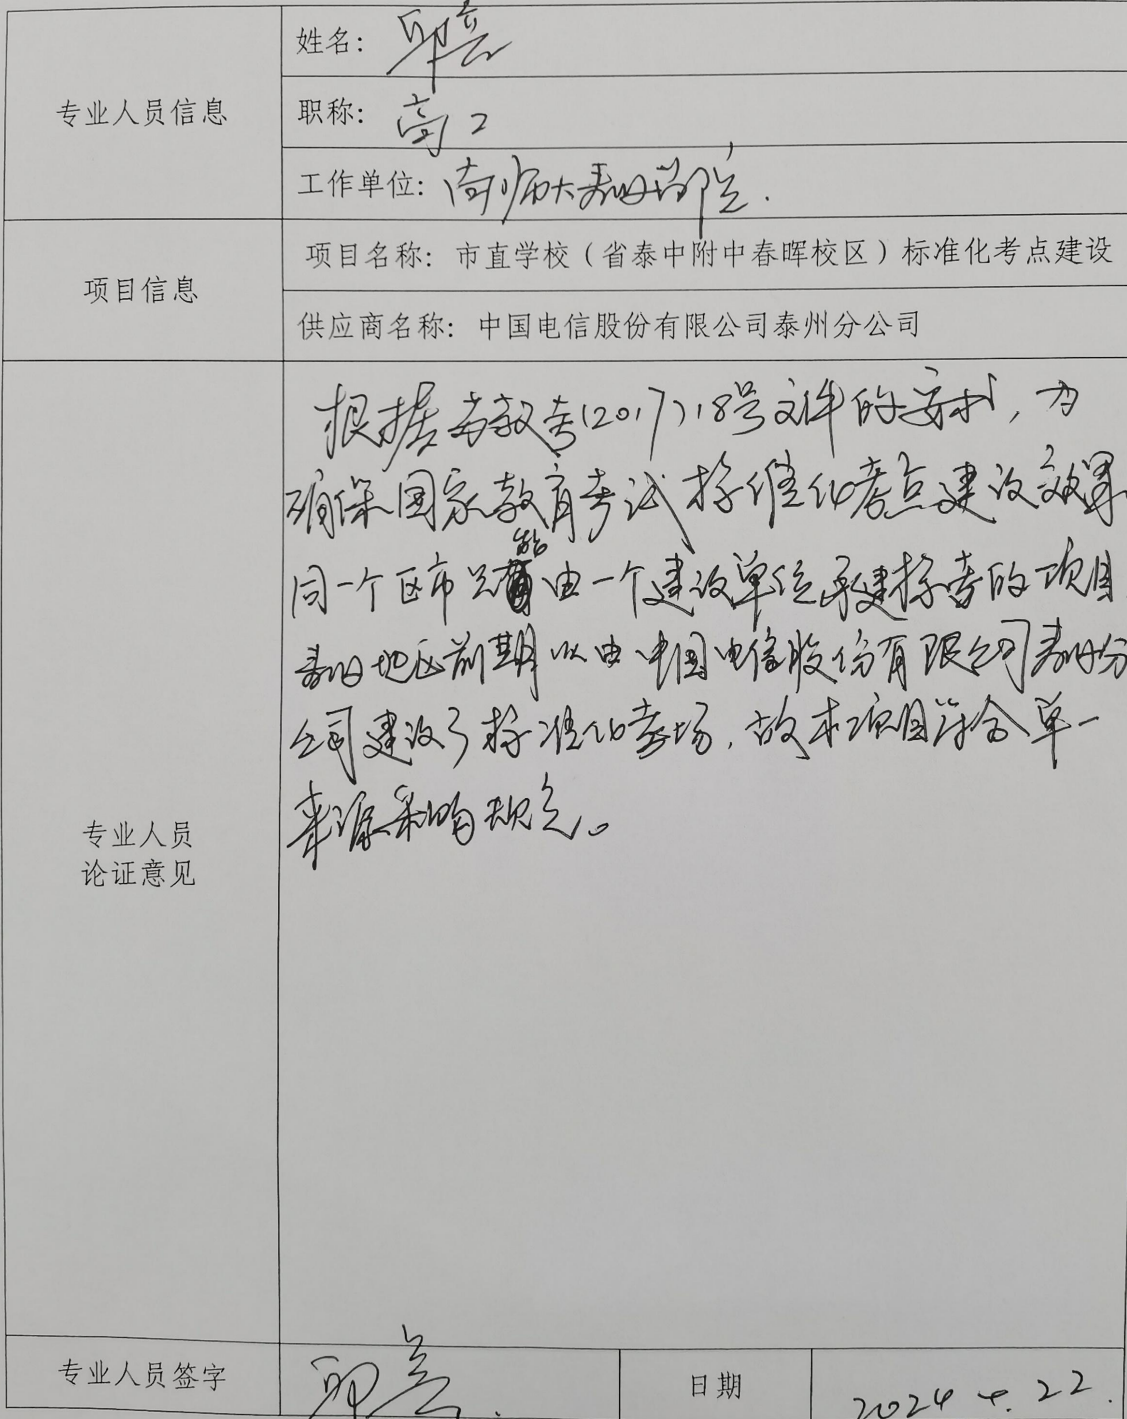 专业人员信息
姓名:
职称: 高工
工作单位: 南师大泰州学院.
项目信息
项目名称: 市直学校(省泰中附中春晖校区)标准化考点建设
供应商名称: 中国电信股份有限公司泰州分公司
专业人员
论证意见
根据苏教考(2017)18号文件的要求, 为
确保国家教育考试标准化考点建设效果
同一个区市只能由一个建设单位承建标考的项目
泰州地区前期以由中国电信股份有限公司泰州分
公司建设了标准化考场, 故本项目符合单一
来源采购规定。
专业人员签字
日期
2024 4. 22.